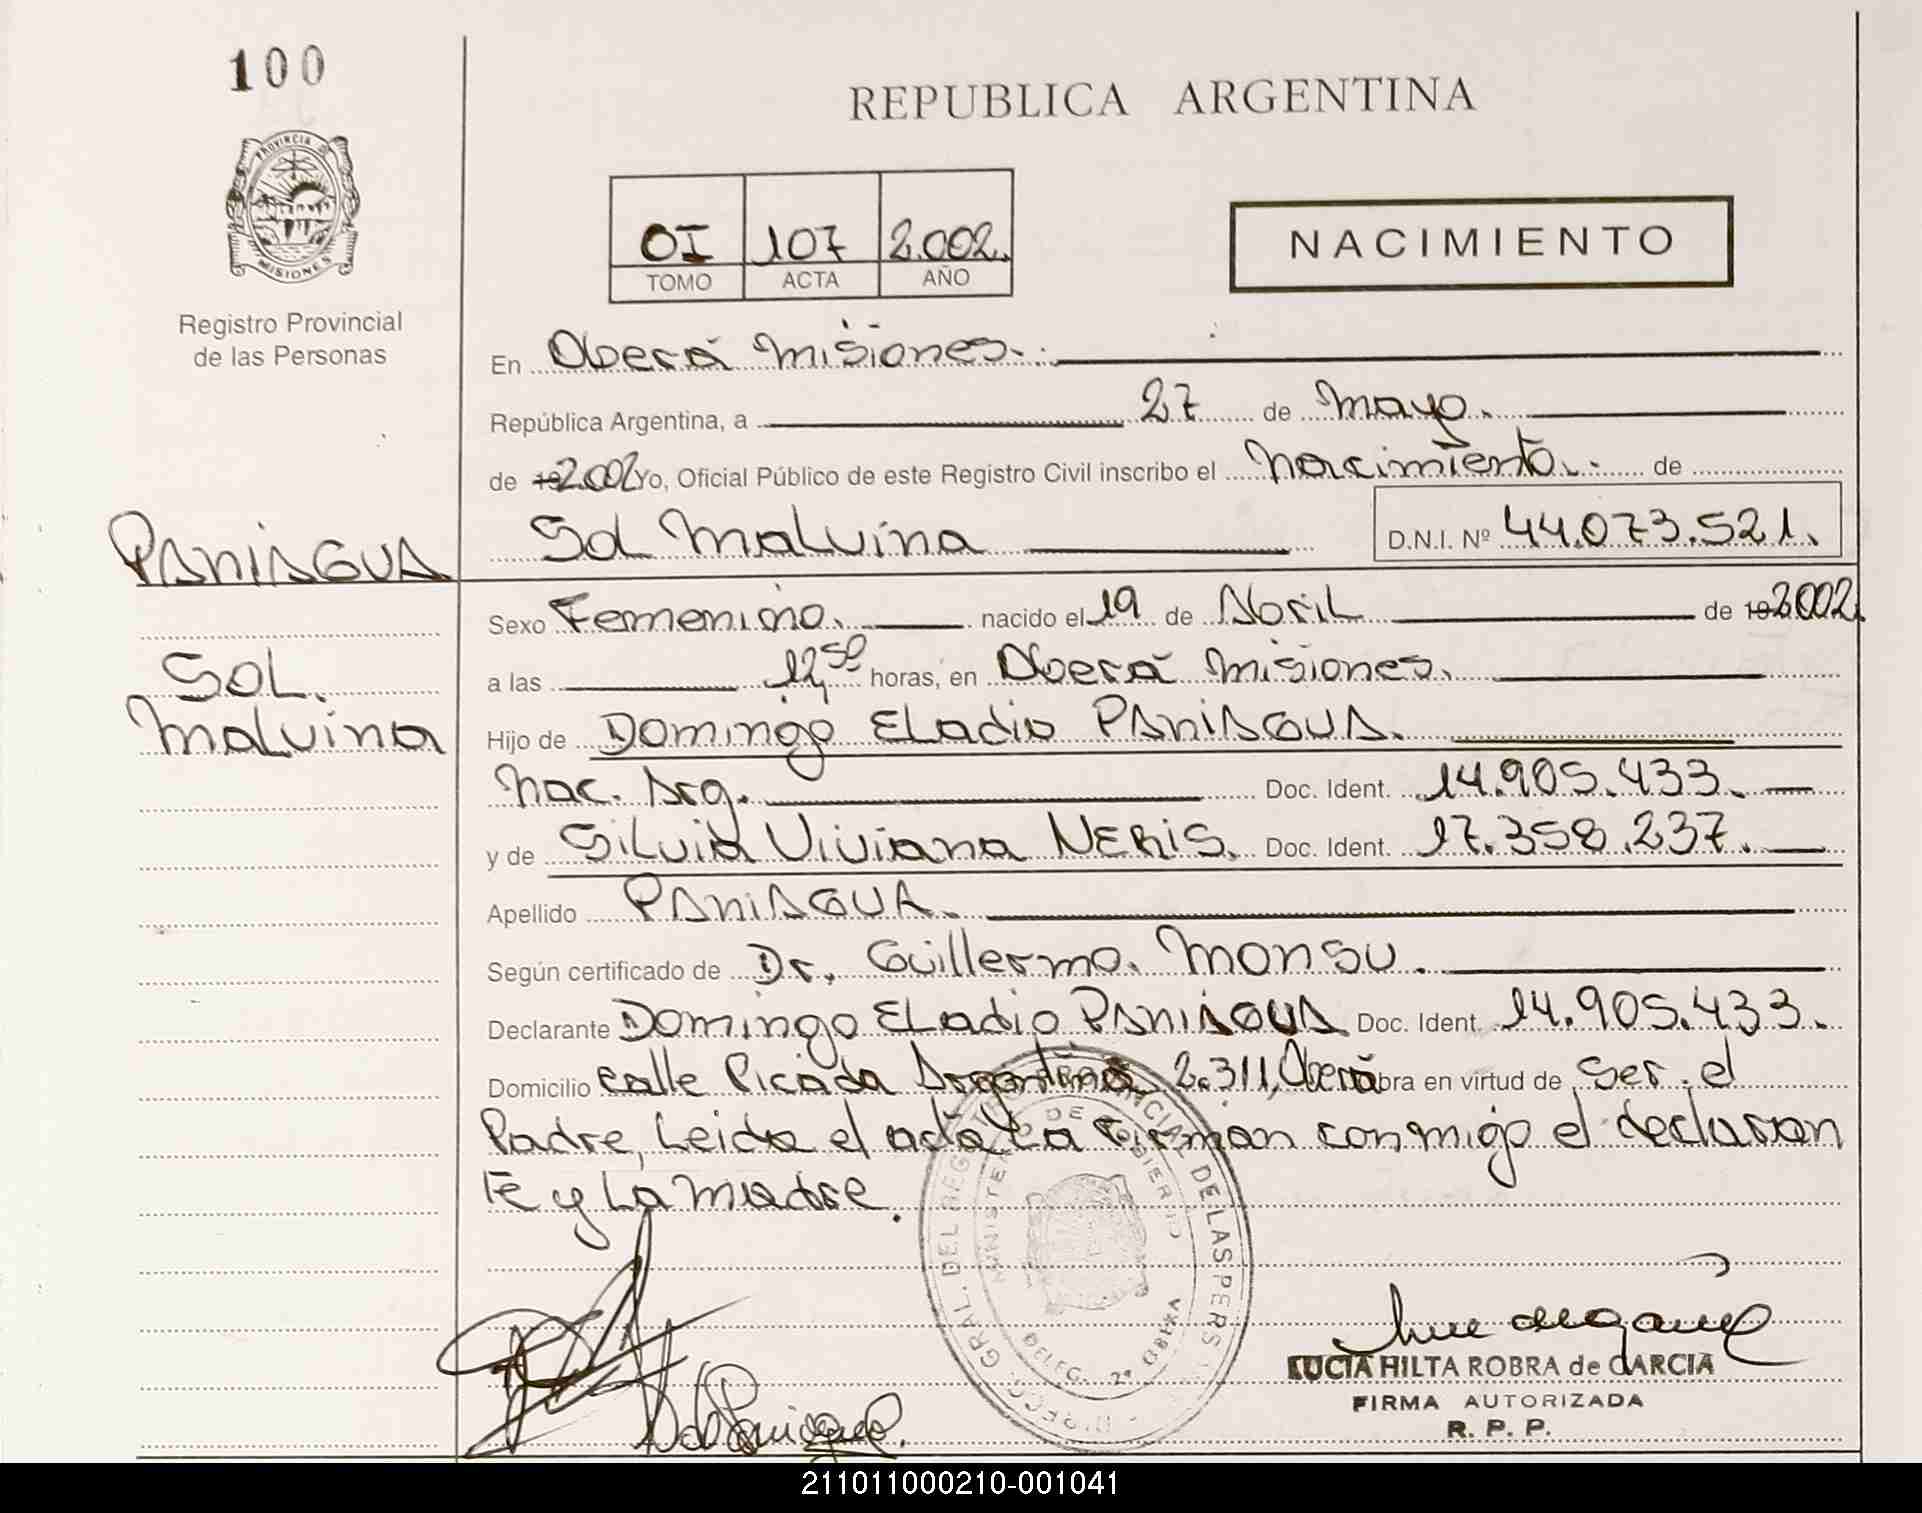 100
REPUBLICA ARGENTINA
PROVINCIA DE
MISIONES
Registro Provincial
de las Personas
OI 107 2.002.
TOMO ACTA AÑO
NACIMIENTO
En Oberá Misiones.
República Argentina, a 27 de Mayo.
de 19 2.002 Yo, Oficial Público de este Registro Civil inscribo el Nacimiento. de
Sol Malvina D.N.I. Nº 44.073.521.
PANIAGUA
SOL.
Malvina
Sexo Femenino. nacido el 19 de Abril de 19 2002.
a las 12,50 horas, en Oberá Misiones.
Hijo de Domingo Eladio PANIAGUA.
Nac. Arg. Doc. Ident. 14.905.433.
y de Silvia Viviana NERIS. Doc. Ident. 17.358.237.
Apellido PANIAGUA.
Según certificado de Dr. Guillermo. Monsu.
Declarante Domingo Eladio PANIAGUA Doc. Ident. 14.905.433.
Domicilio calle Picada Argentina 2.311, Oberá bra en virtud de ser el
Padre, Leida el acta La Firman conmigo el declaran
te y La Madre.
DIRECC. GRAL. DEL REGISTRO PROVINCIAL DE LAS PERS
MINISTERIO DE GOBIERNO
DELEG. 2ª OBERA
LUCIA HILTA ROBRA de GARCIA
FIRMA AUTORIZADA
R. P. P.
211011000210-001041